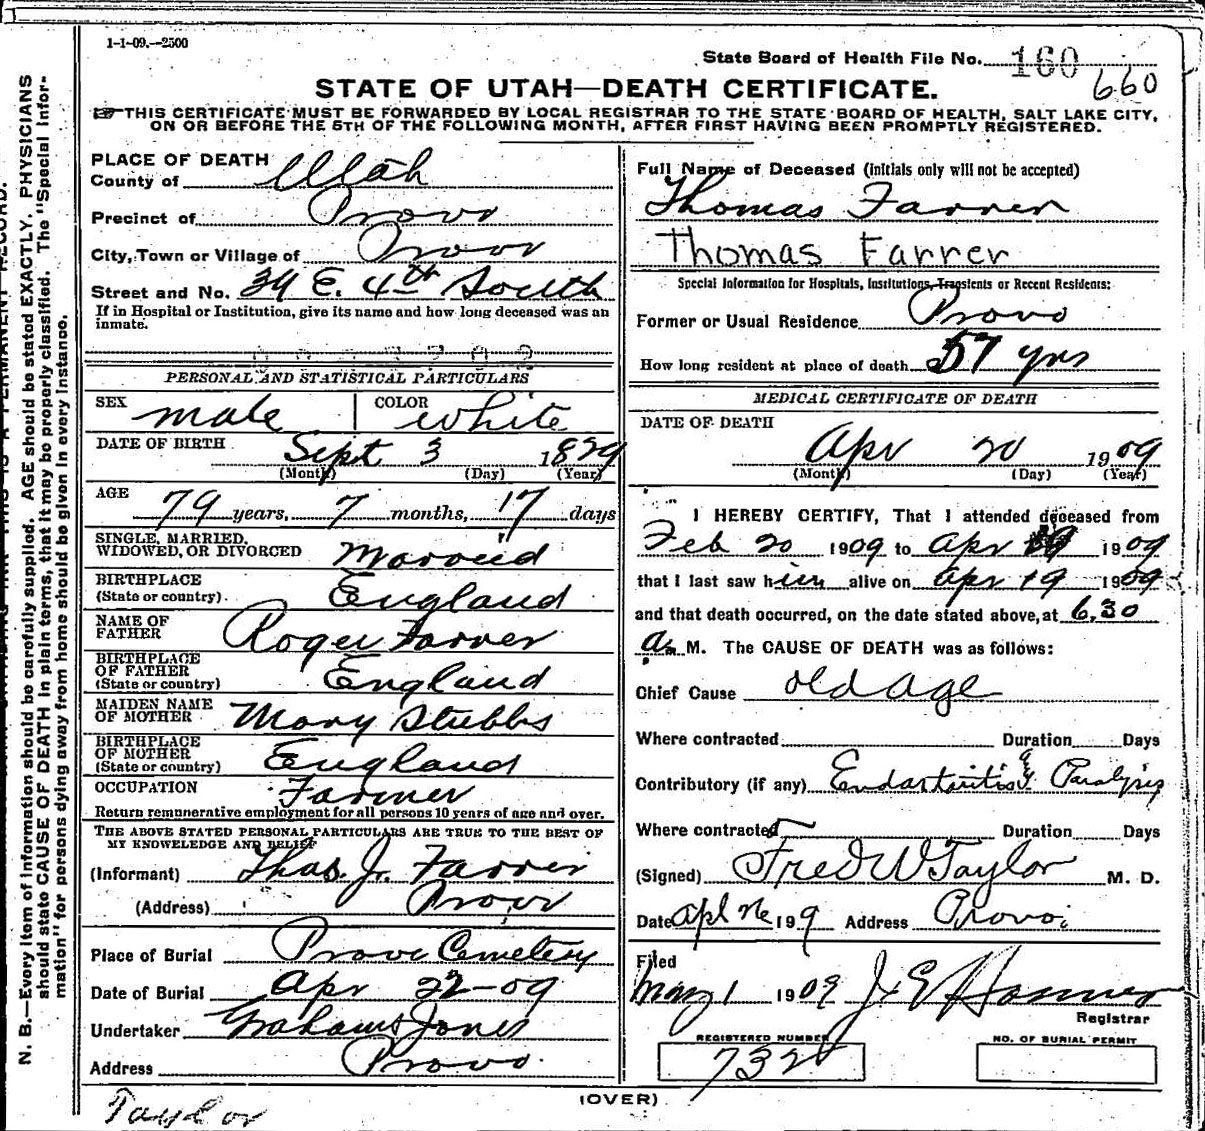 1-1-09.—2500
State Board of Health File No. 160
660
STATE OF UTAH—DEATH CERTIFICATE.
THIS CERTIFICATE MUST BE FORWARDED BY LOCAL REGISTRAR TO THE STATE BOARD OF HEALTH, SALT LAKE CITY,
ON OR BEFORE THE 5TH OF THE FOLLOWING MONTH, AFTER FIRST HAVING BEEN PROMPTLY REGISTERED.
PLACE OF DEATH
County of Utah
Precinct of Provo
City, Town or Village of Provo
Street and No. 34 E. 4th South
If in Hospital or Institution, give its name and how long deceased was an
inmate.
PERSONAL AND STATISTICAL PARTICULARS
SEX male COLOR White
DATE OF BIRTH Sept 3 1829
(Month) (Day) (Year)
AGE 79 years, 7 months, 17 days
SINGLE, MARRIED,
WIDOWED, OR DIVORCED Married
BIRTHPLACE
(State or country) England
NAME OF
FATHER Roger Farrer
BIRTHPLACE
OF FATHER
(State or country) England
MAIDEN NAME
OF MOTHER Mary Stubbs
BIRTHPLACE
OF MOTHER
(State or country) England
OCCUPATION Farmer
Return remunerative employment for all persons 10 years of age and over.
THE ABOVE STATED PERSONAL PARTICULARS ARE TRUE TO THE BEST OF
MY KNOWLEDGE AND BELIEF
(Informant) Thos. J. Farrer
(Address) Provo
Place of Burial Provo Cemetery
Date of Burial Apr 22-09
Undertaker Grahams Jones
Address Provo
Taylor
Full Name of Deceased (initials only will not be accepted)
Thomas Farrer
Thomas Farrer
Special Information for Hospitals, Institutions, Transients or Recent Residents:
Former or Usual Residence Provo
How long resident at place of death 57 yrs
MEDICAL CERTIFICATE OF DEATH
DATE OF DEATH
Apr 20 1909
(Month) (Day) (Year)
I HEREBY CERTIFY, That I attended deceased from
Feb 20 1909 to Apr 19 1909
that I last saw him alive on Apr 19 1909
and that death occurred, on the date stated above, at 6.30
a. M. The CAUSE OF DEATH was as follows:
Chief Cause old age
Where contracted Duration Days
Contributory (if any) Endarteritis & Paralysis
Where contracted Duration Days
(Signed) Fred W Taylor M. D.
Date Apl 190 9 Address Provo
Filed
May 1 1909 J. E.
Registrar
REGISTERED NUMBER
732
NO. OF BURIAL PERMIT
(OVER)
N. B.—Every item of information should be carefully supplied. AGE should be stated EXACTLY. PHYSICIANS
should state CAUSE OF DEATH in plain terms, that it may be properly classified. The "Special Infor-
mation" for persons dying away from home should be given in every instance.